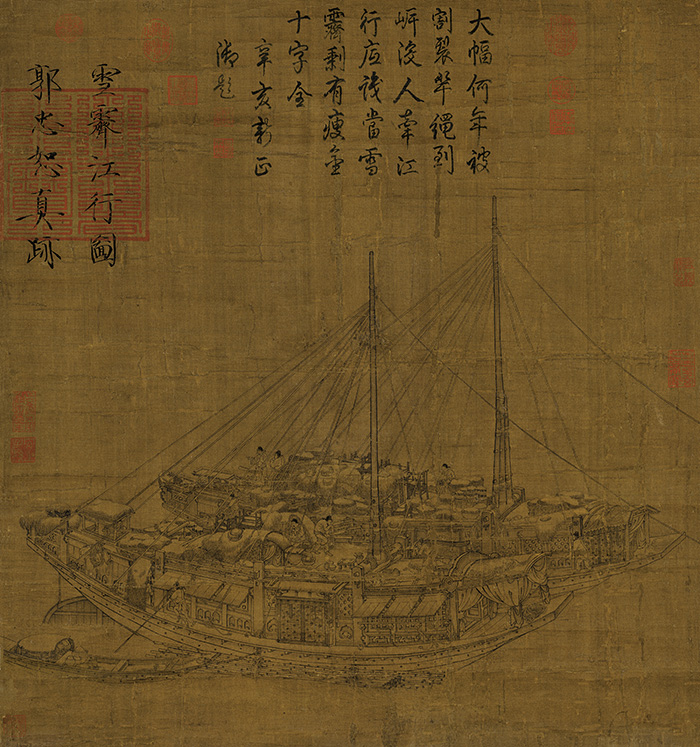 大幅何年被
割裂繩到
岸没人牽江
行應識當雪
霽剩有瘦金
十字全
辛亥新正
御題
雪霽江行圖
郭忠恕真跡